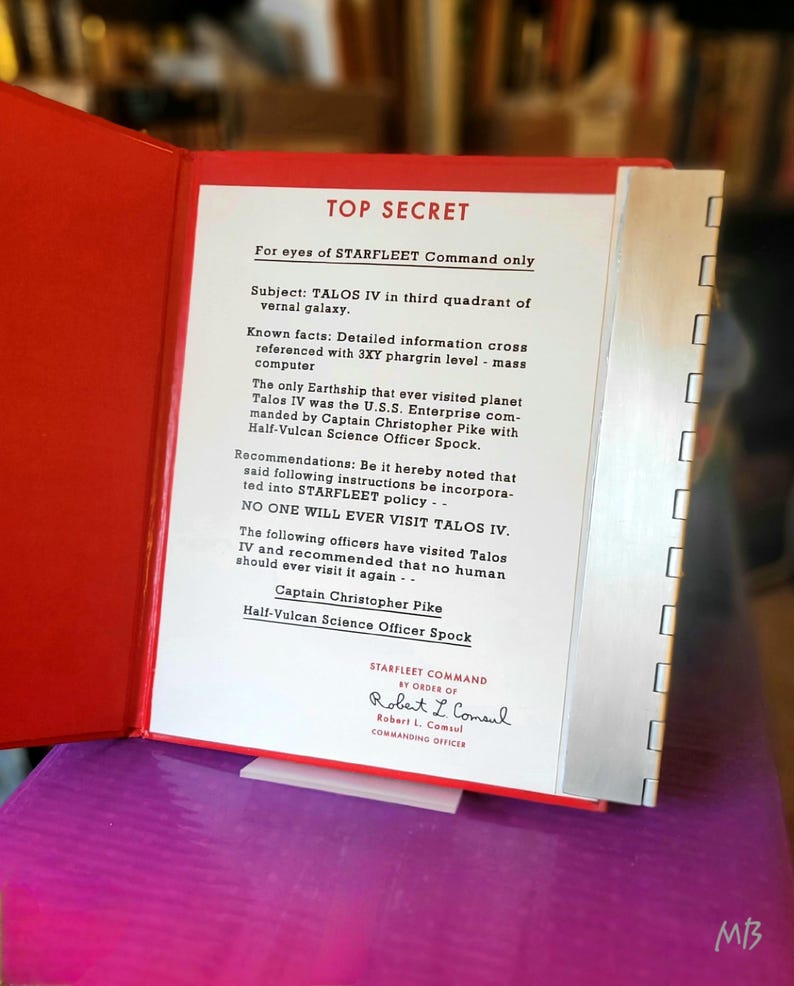 TOP SECRET
For eyes of STARFLEET Command only
Subject: TALOS IV in third quadrant of
vernal galaxy.
Known facts: Detailed information cross
referenced with 3XY phargrin level - mass
computer
The only Earthship that ever visited planet
Talos IV was the U.S.S. Enterprise com-
manded by Captain Christopher Pike with
Half-Vulcan Science Officer Spock.
Recommendations: Be it hereby noted that
said following instructions be incorpora-
ted into STARFLEET policy - -
NO ONE WILL EVER VISIT TALOS IV.
The following officers have visited Talos
IV and recommended that no human
should ever visit it again - -
Captain Christopher Pike
Half-Vulcan Science Officer Spock
STARFLEET COMMAND
BY ORDER OF
Robert L. Comsul
Robert L. Comsul
COMMANDING OFFICER
MB